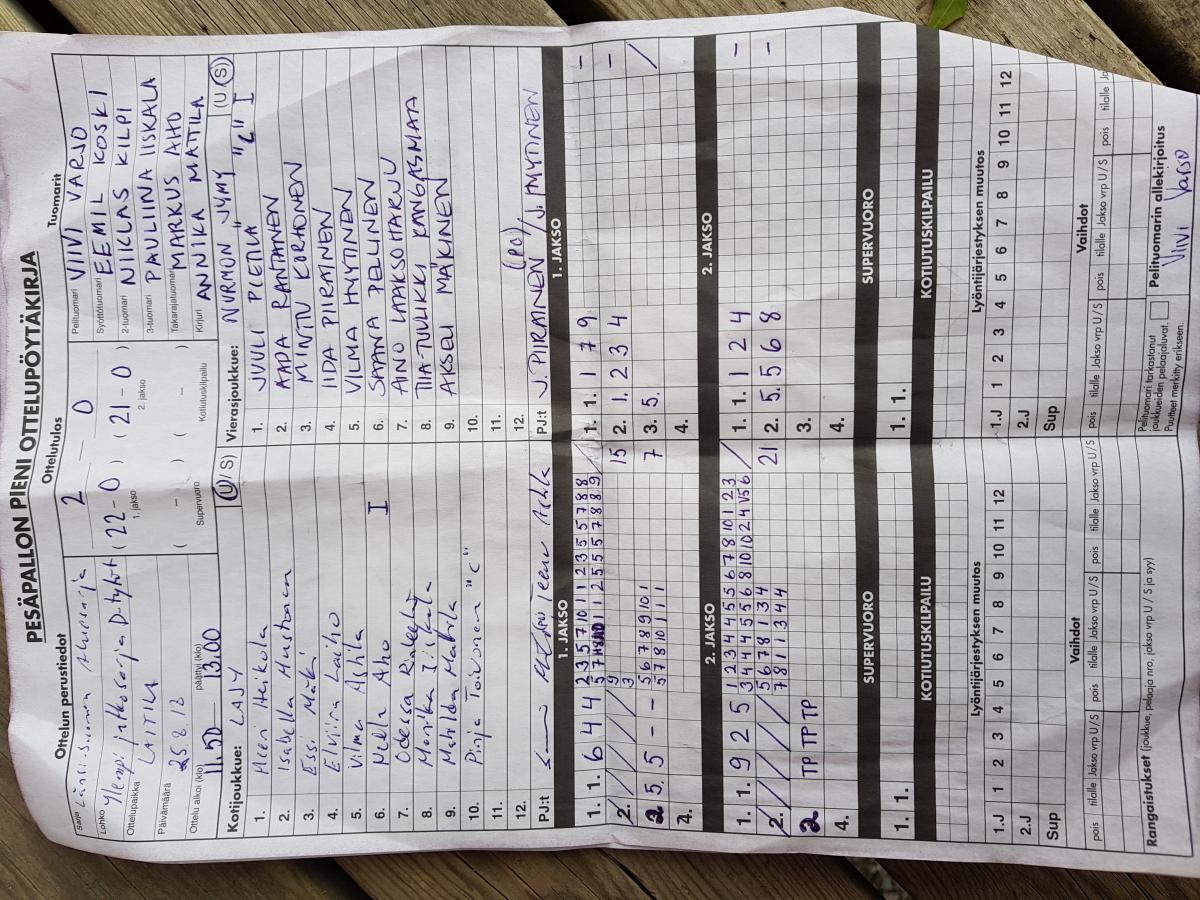 PESÄPALLON PIENI OTTELUPÖYTÄKIRJA
Ottelun perustiedot
Sarja Länsi-Suomen Aluesarja
Lohko Ylempi jatkosarja D-tytöt
Ottelupaikka LAITILA
Päivämäärä 25.8.12
Ottelu alkoi (klo) 11.50 päättyi (klo) 13.00
Ottelutulos
2 – 0
( 22 – 0 ) ( 21 – 0 )
1. jakso 2. jakso
( – ) ( – )
Supervuoro Kotiutuskilpailu
Tuomarit
Pelituomari VIIVI VARJO
Syöttötuomari EEMIL KOSKI
2-tuomari NIKLAS KILPI
3-tuomari PAULIINA IISKALA
Takarajatuomari MARKUS AHO
Kirjuri ANNIKA MATTILA
Kotijoukkue: LAJY (U / S)
1. Meeri Heikola
2. Isabella Mustonen
3. Essi Mäki
4. Elviira Laiho
5. Vilma Ashla
6. Nella Aho I
7. Odessa
8. Monika Iikala
9. Matilda Mattila
10. Pinja Toivonen "C"
11.
12.
PJ:t Teemu
Vierasjoukkue: NURMON JYMY (U / S)
1. JUULI PLETILÄ "C" I
2. AADA RANTANEN
3. MINTTU KORHONEN
4. IIDA PIIRAINEN
5. VILMA HYYTINEN
6. SAANA PELLINEN
7. AINO LAAKSOHARJU
8. TIIA-TUULIKKI KANGASMAA
9. AKSELI MÄKINEN
10.
11.
12. (PO)
PJ:t J. PIIRAINEN / J. HYYTINEN
1. JAKSO 1. JAKSO
1. 1. 6 4 4 2 3 5 7 10 1 1 2 3 5 5 7 8 8 /
5 7 10 1 1 2 5 5 5 7 8 8 9
1. 1. 1 7 9 –
2. / / / / 9 15
3
2. 1. 2 3 4 –
2 5. 5 – – 5 6 7 8 9 10 1 7
5 7 8 10 1 1 1
3. 5. /
4.
4.
2. JAKSO 2. JAKSO
1. 1. 9 2 5 1 2 3 4 4 5 5 6 7 8 10 1 2 3 /
3 4 4 4 5 6 8 10 10 2 4 4 5 6
1. 1. 1 2 4 –
2. / / / / 5 6 7 8 1 3 4 21
7 8 1 1 3 4 4
2. 5. 5 6 8 –
2 TP TP TP
3.
4.
4.
SUPERVUORO SUPERVUORO
1. 1.
1. 1.
KOTIUTUSKILPAILU KOTIUTUSKILPAILU
Lyöntijärjestyksen muutos
1.J 1 2 3 4 5 6 7 8 9 10 11 12
2.J
Sup
Lyöntijärjestyksen muutos
1.J 1 2 3 4 5 6 7 8 9 10 11 12
2.J
Sup
Vaihdot
pois tilalle Jakso vrp U / S pois tilalle Jakso vrp U / S pois tilalle Jakso vrp U / S
Vaihdot
pois tilalle Jakso vrp U / S pois tilalle Jakso vrp U / S pois tilalle
Rangaistukset (joukkue, pelaaja nro, jakso vrp U / S ja syy)
Pelituomari tarkastanut
joukkueiden pelaajaluvat.
Puutteet merkitty erikseen.
Pelituomarin allekirjoitus
Viivi Varjo